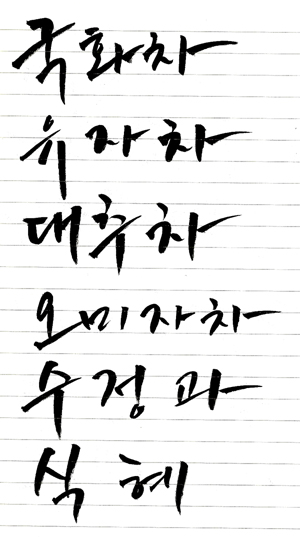 국화차
유자차
대추차
오미자차
수정과
식혜